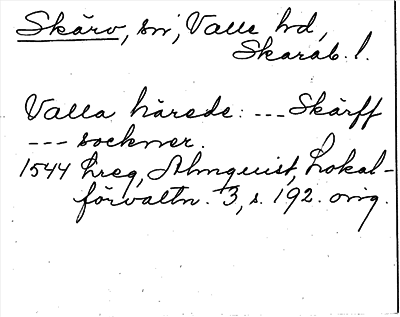 Skärv, sn, Valle hd,
Skarab. l.
Valla härede: --- Skärff
--- sockner.
1544 hreg, Almquist, Lokal-
förvaltn. 3, s. 192. orig.